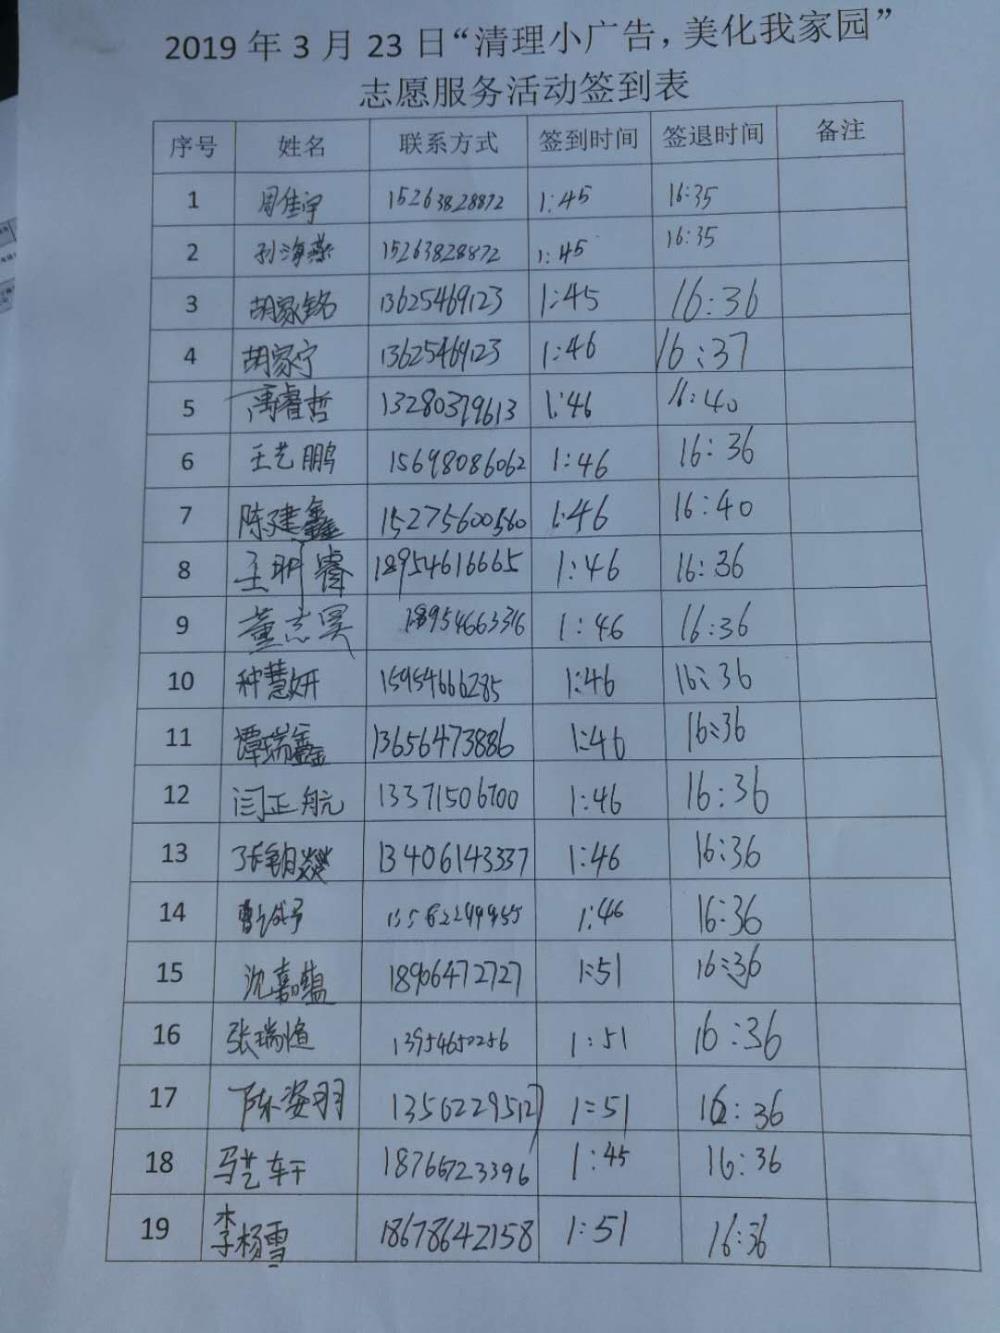 2019 年 3 月 23 日“清理小广告，美化我家园”
志愿服务活动签到表
序号 姓名 联系方式 签到时间 签退时间 备注
1 周佳宇 15263828872 1:45 16:35
2 孙海燕 15263828872 1:45 16:35
3 胡家铭 13625469123 1:45 16:36
4 胡家宁 13625469123 1:46 16:37
5 禹睿哲 13280379613 1:46 16:40
6 王艺鹏 15698086062 1:46 16:36
7 陈建鑫 15275600560 1:46 16:40
8 王玥睿 18954616665 1:46 16:36
9 董志昊 18954663316 1:46 16:36
10 种慧妍 15954666285 1:46 16:36
11 谭瑞鑫 13656473886 1:46 16:36
12 闫正航 13371506700 1:46 16:36
13 13406143337 1:46 16:36
14 1:46 16:36
15 沈嘉 18906472727 1:51 16:36
16 张瑞恒 13954650256 1:51 16:36
17 陈姿羽 13562295127 1:51 16:36
18 马艺轩 18766723396 1:45 16:36
19 李杨雪 18678642158 1:51 16:36